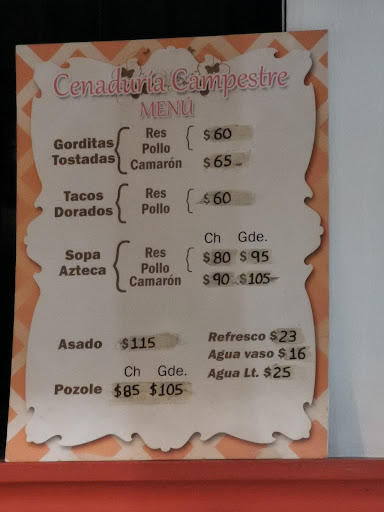 Cenaduría Campestre
MENÚ
Gorditas
Tostadas
Res
Pollo
Camarón
$60
$65
Tacos
Dorados
Res
Pollo
$60
Ch Gde.
Sopa
Azteca
Res
Pollo
Camarón
$80 $95
$90 $105
Asado $115
Ch Gde.
Pozole $85 $105
Refresco $23
Agua vaso $16
Agua Lt. $25